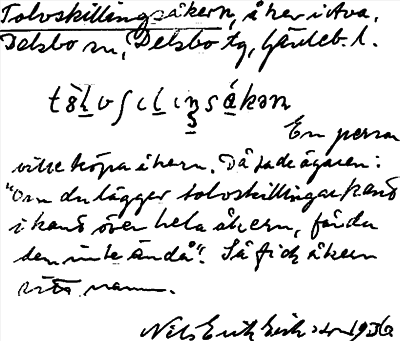 Tolvskillingsåkern, åker i Ava,
Delsbo sn, Delsbo tg, Gävleb. l.
En person
ville köpa åkern. Då sade ägaren:
"Om du lägger tolvskillingar kant
i kant över hela åkern, får du
den inte ändå". Så fick åkern
sitt namn.
Nils Erik 1936